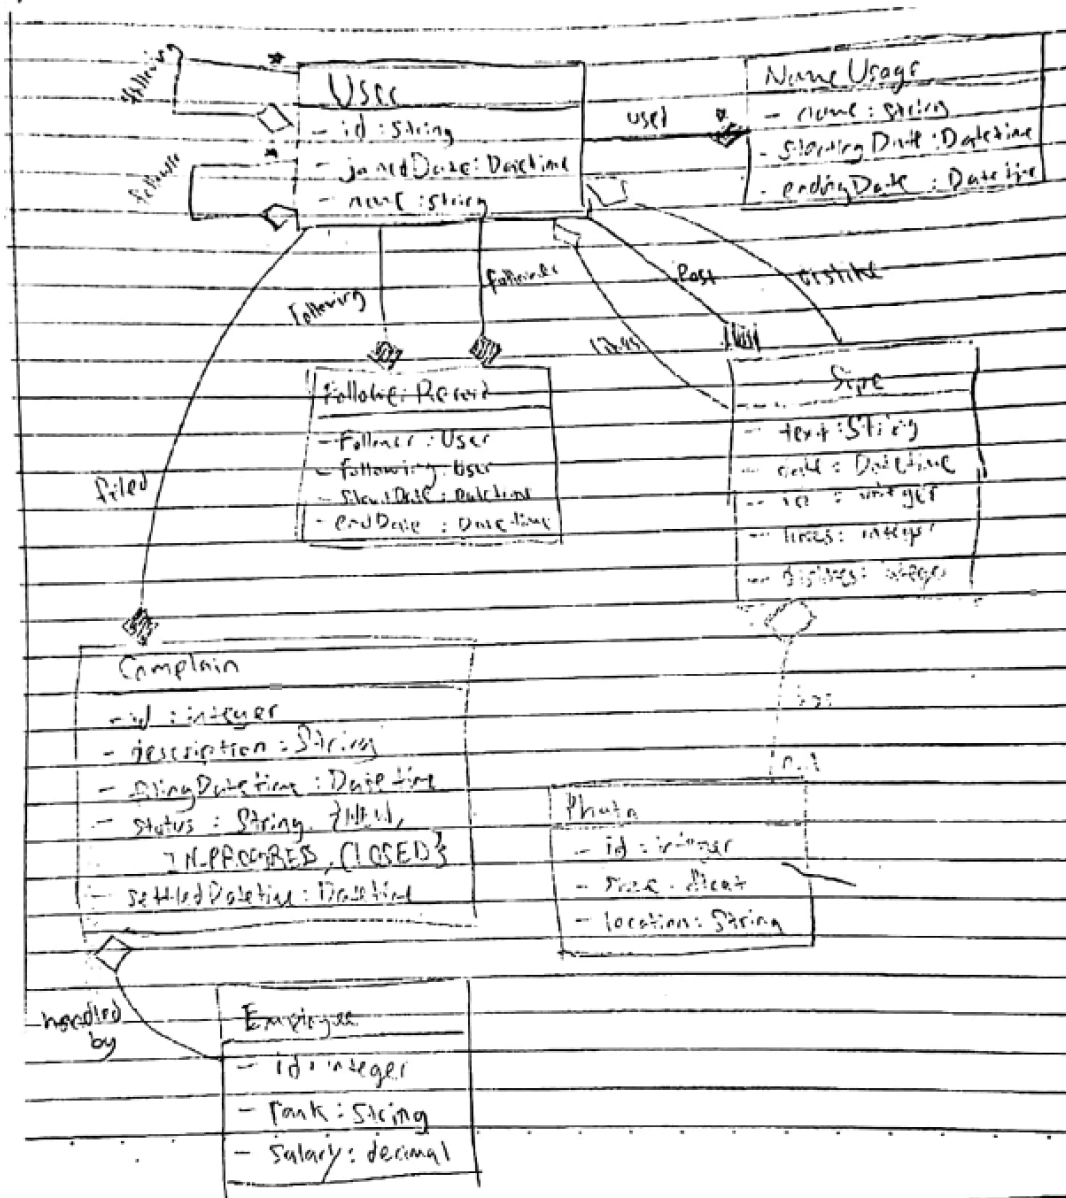 following
*
User
- id : String
- joinedDate : Datetime
- name : String
*
used
Name Usage
- name : String
- startingDate : Datetime
- endingDate : Datetime
following
Post
dislike
filed
- Follower : User
- following : User
- startDate : Datetime
- endDate : Datetime
- text : String
- date : Datetime
: integer
- likes : integer
- dislikes : integer
Complain
- id : integer
- description : String
- filingDatetime : Datetime
- status : String {NEW,
IN-PROGRESS, CLOSED}
- settledDatetime : Datetime
Photo
- id : integer
- size : float
- location : String
handled
by
Employee
- id : integer
- rank : String
- salary : decimal